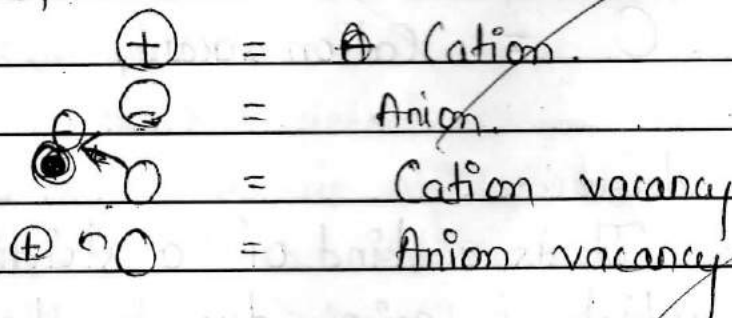 ⊕ = Cation.
⊖ = Anion.
○ = Cation vacancy
⊕ ○ = Anion vacancy